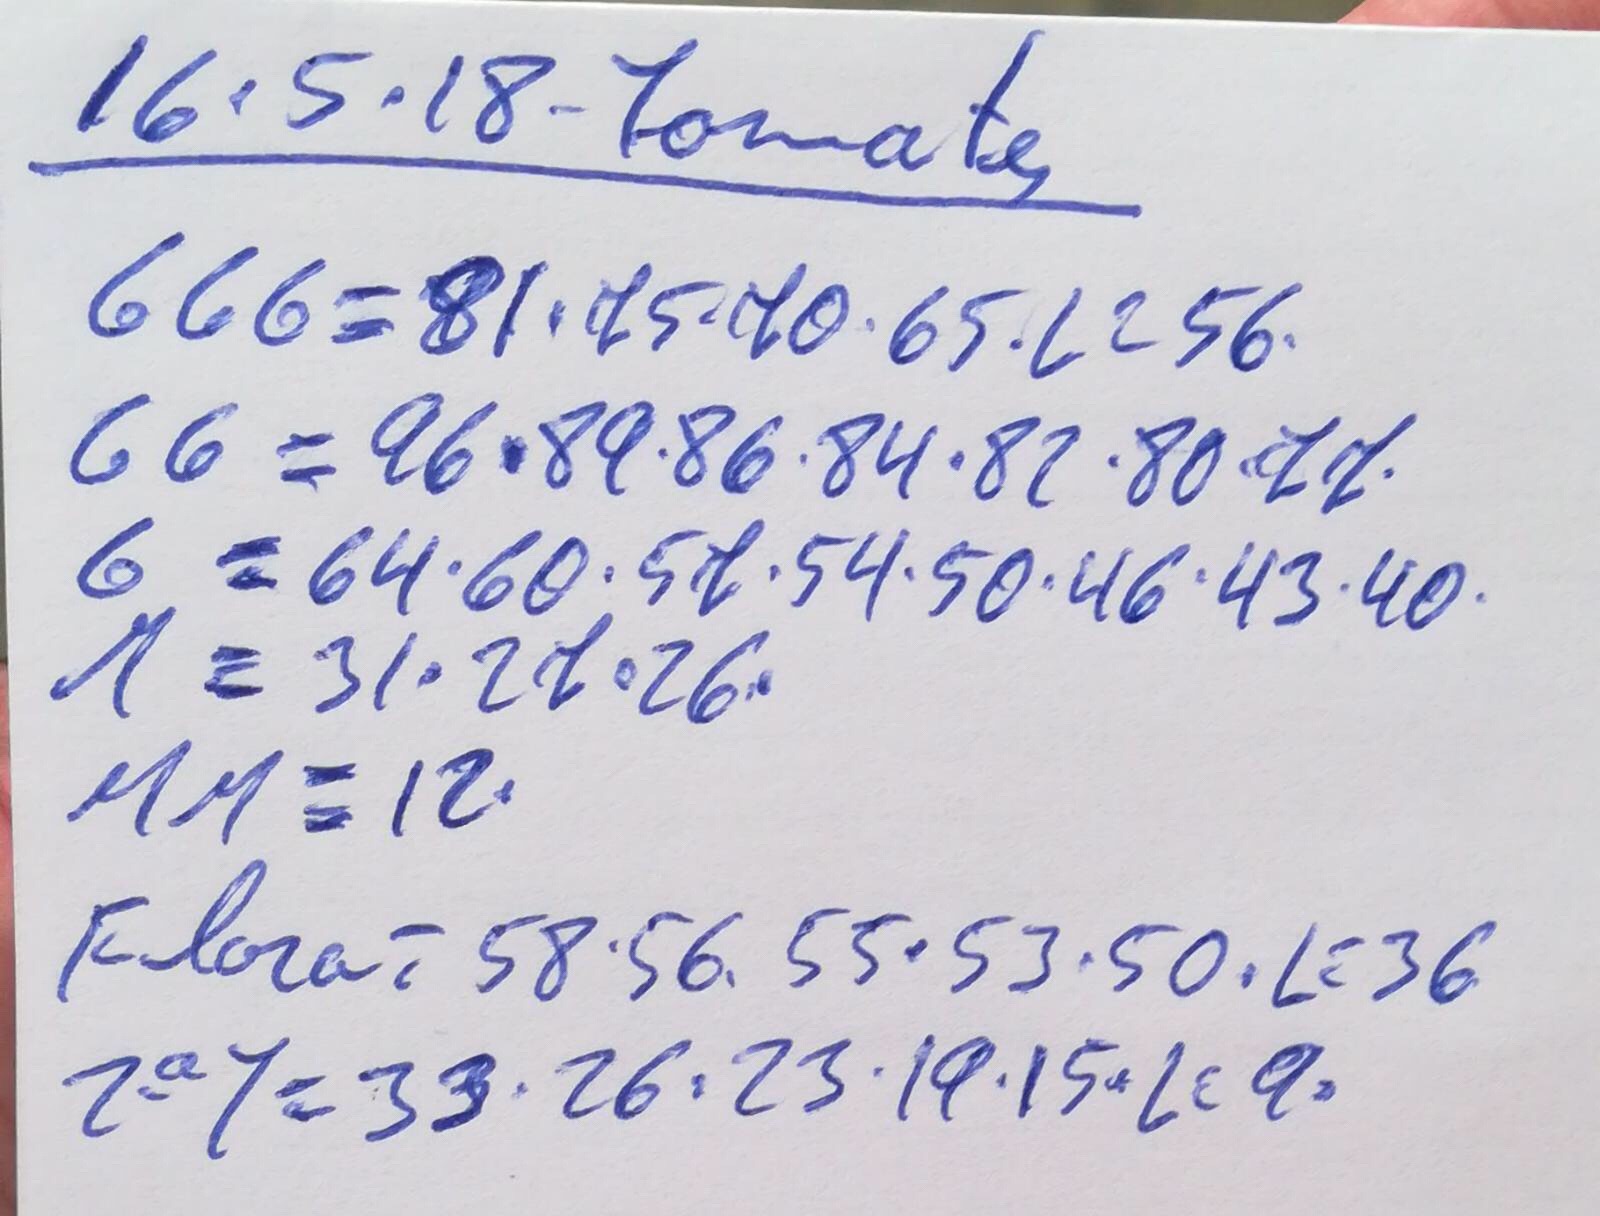 16.5.18-Tomates
GGG=81.75.70.65.L=56.
GG=96.89.86.84.82.80.77.
G=64.60.57.54.50.46.43.40.
M=31.27.26.
MM=12.
Flora=58.56.55.53.50.L=36
2ªY=33.26.23.19.15.L=9.